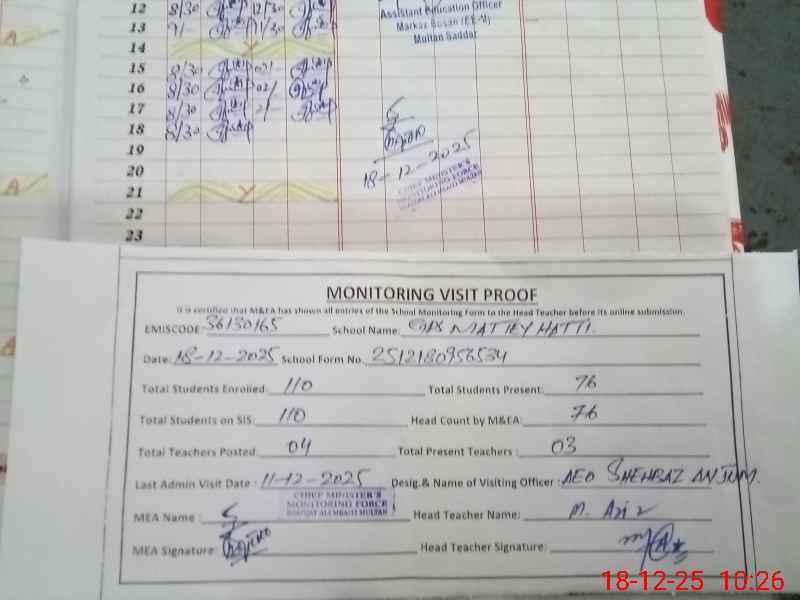 12 8/30 12/30
13 9/- 11/30
14
15 8/30
16 8/30
17 8/30 2/-
18 8/30
19
20
21
22
23
A
A
Assistant Education Officer
Markaz Bosan (EE-M)
Multan Saddar
18-12-2025
CHIEF MINISTER'S
MONITORING FORCE
MONITORING VISIT PROOF
It is certified that M&EA has shown all entries of the School Monitoring Form to the Head Teacher before its online submission.
EMISCODE 36130165 School Name: GPS MATTEY HATTI.
Date: 18-12-2025 School Form No. 2512180956534
Total Students Enrolled: 110 Total Students Present: 76
Total Students on SIS: 110 Head Count by M&EA: 76
Total Teachers Posted: 04 Total Present Teachers : 03
Last Admin Visit Date : 11-12-2025 Desig.& Name of Visiting Officer : AEO SHEHBAZ ANJUM.
CHIEF MINISTER'S
MONITORING FORCE
MEA Name : Head Teacher Name: M. Aziz
MEA Signature: Head Teacher Signature:
18-12-25 10:26